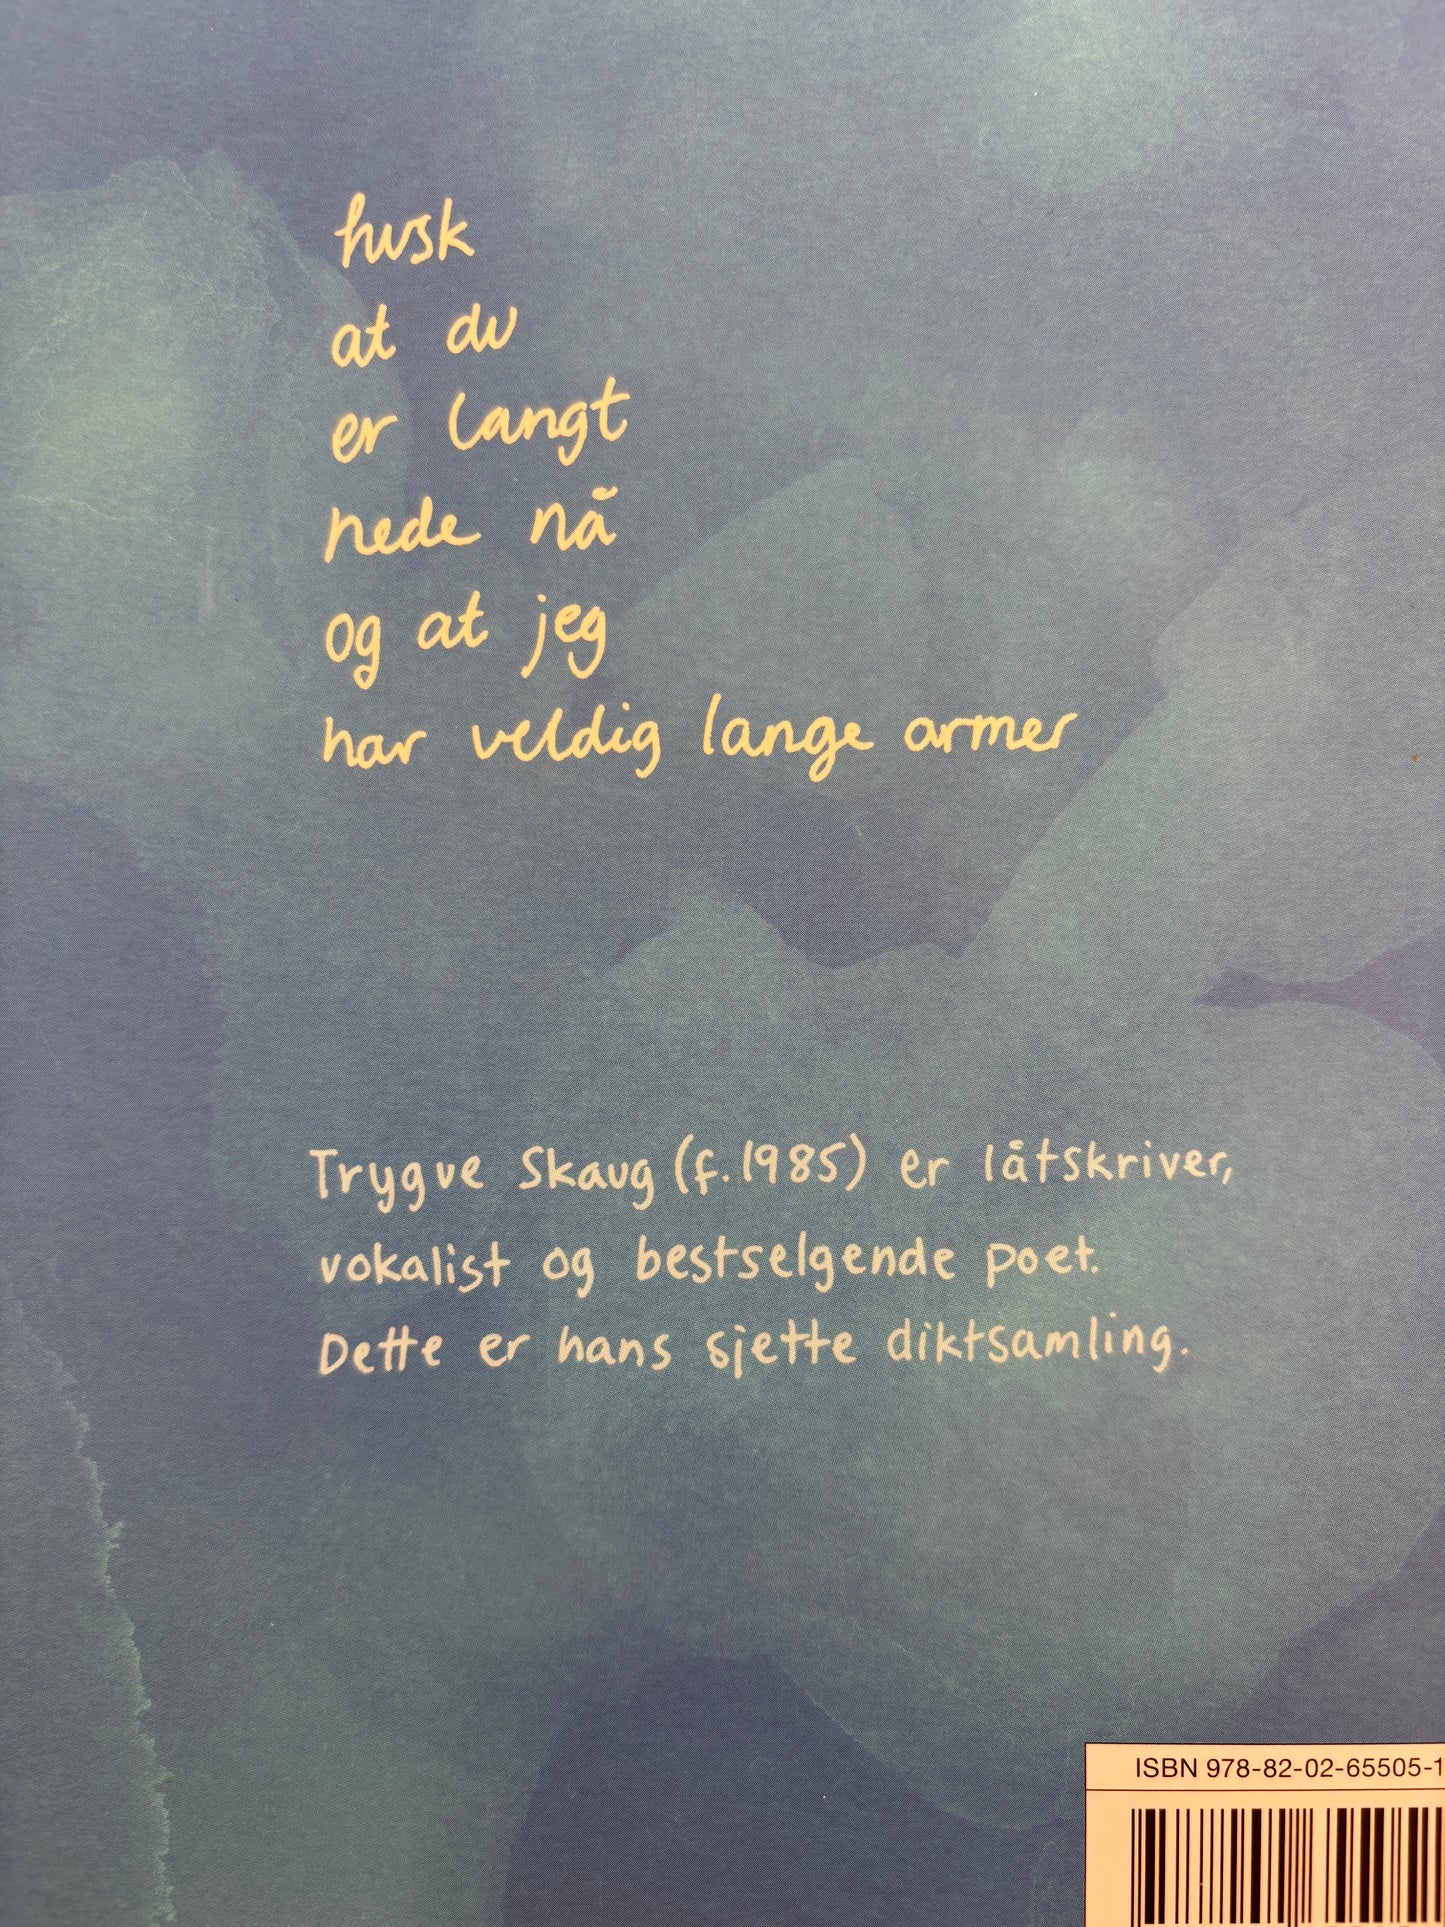 husk
at du
er langt
nede nå
og at jeg
har veldig lange armer
Trygve Skaug (f. 1985) er låtskriver,
vokalist og bestselgende poet.
Dette er hans sjette diktsamling.
ISBN 978-82-02-65505-1